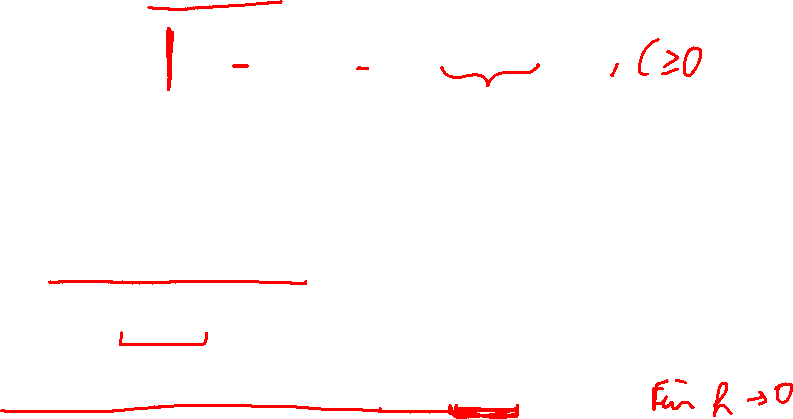 , C ≥ 0
Für h → 0